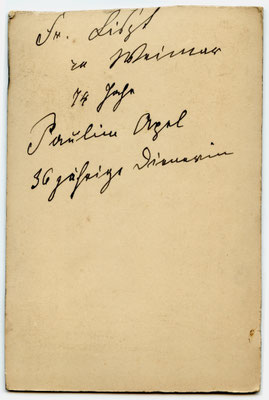 Fr. Liszt
zu Weimar
74 Jahr
Paulin Apel
36 jährige Dienerin